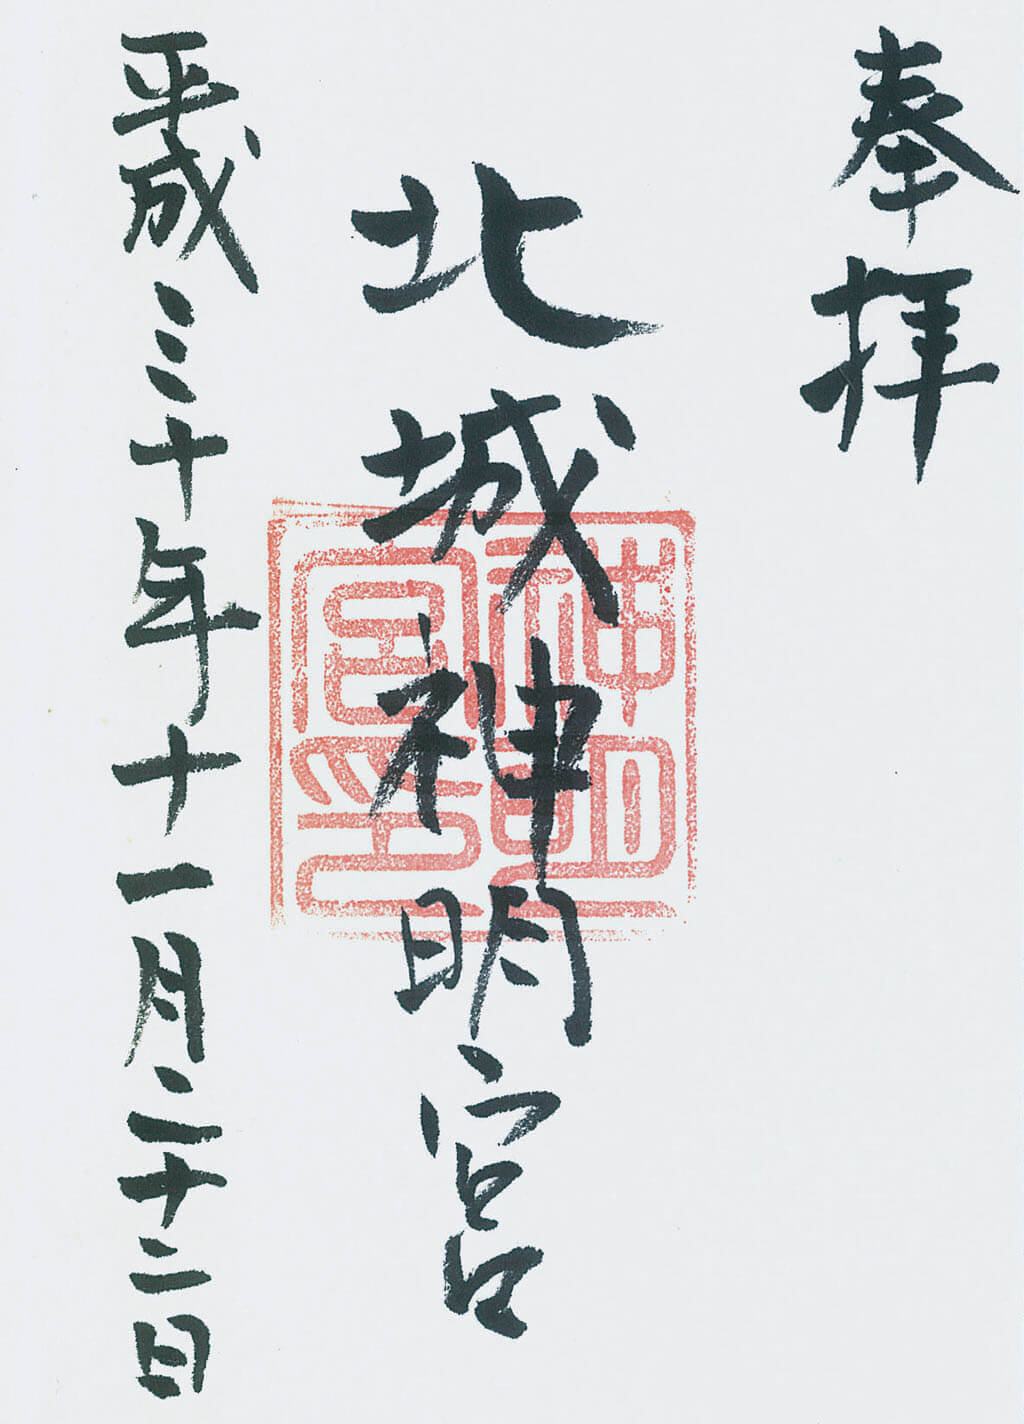 奉拝
北城神明宮
神明宮印
平成三十年十一月二十二日